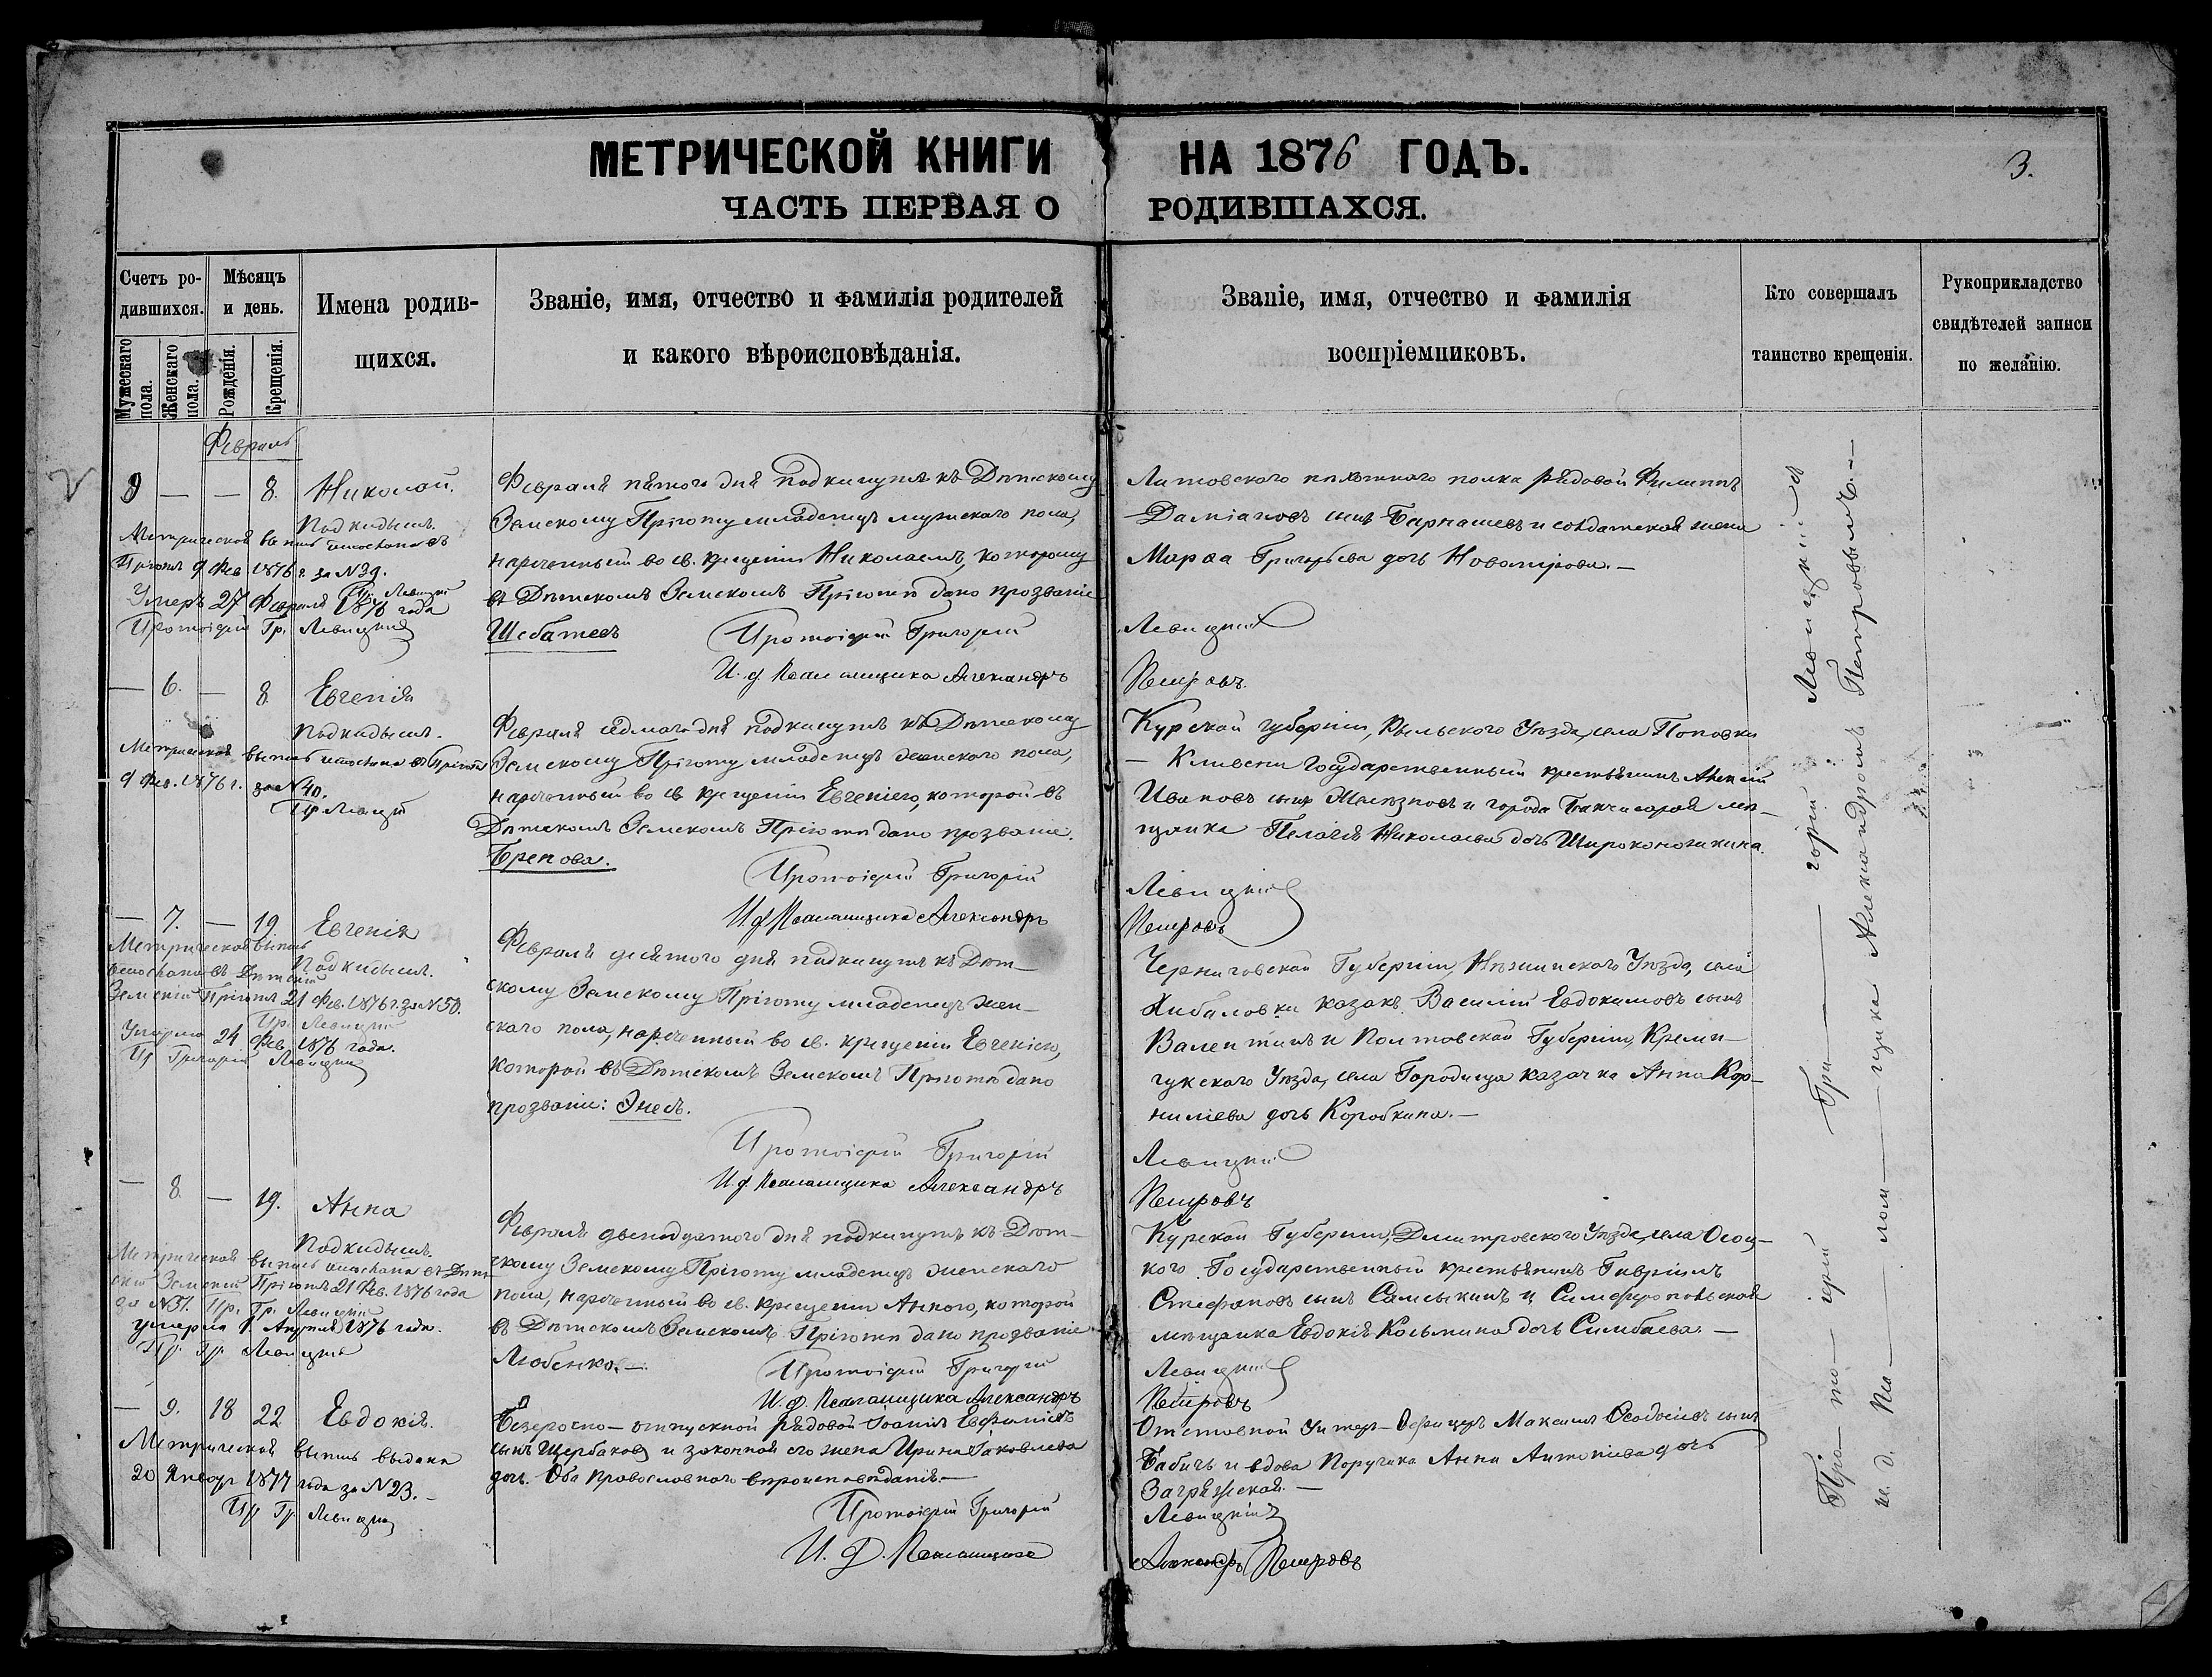 МЕТРИЧЕСКОЙ КНИГИ НА 1876 ГОДЪ.
3.
ЧАСТЬ ПЕРВАЯ О РОДИВШАХСЯ.
Счетъ ро-
дившихся.
Мужескаго пола.
Женскаго пола.
Мѣсяцъ
и день.
Рожденія.
Крещенія.
Имена родив-
щихся.
Званіе, имя, отчество и фамилія родителей
и какого вѣроисповѣданія.
Званіе, имя, отчество и фамилія
воспріемниковъ.
Кто совершалъ
таинство крещенія.
Рукоприкладство
свидѣтелей записи
по желанію.
Февраль
9 — — 8. Николай.
Подкидышъ.
Метрическая выпись отослана въ
Пріютъ 9 Фев. 1876 г. за N 39.
Пр. Левицкій
Умеръ 27 Февраля 1876 года
Протоіерей Гр. Левицкій
Февраля пятого дня подкинутъ къ Дѣтскому
Земскому Пріюту младенецъ мужскаго пола,
нареченный во св. крещеніи Николаемъ, которому
въ Дѣтскомъ Земскомъ Пріютѣ дано прозваніе
Шебатеевъ
Протоіерей Григорій Левицкій
И. д. Псаломщика Александръ Петровъ.
Литовского пѣхотнаго полка рядовой Филиппъ
Даміановъ сынъ Барнашевъ и солдатская жена
Марѳа Григорьева дочь Новомірова. —
— 6. — 8 Евгенія
Подкидышъ.
Метрическая выпись отослана въ Пріютъ
9 Фев. 1876 г. за N 40.
Пр. Левицкій
Февраля седмаго дня подкинутъ къ Дѣтскому
Земскому Пріюту младенецъ женскаго пола,
нареченный во св. крещеніи Евгеніею, которой въ
Дѣтскомъ Земскомъ Пріютѣ дано прозваніе.
Брепова.
Протоіерей Григорій Левицкій
И. д. Псаломщика Александръ Петровъ
Курской губерніи, Рыльского Уѣзда, села Поповки
— Кливени Государственный крестьянинъ Алексѣй
Ивановъ сынъ и города Бакчисарая мѣ-
щанка Пелагія Николаева дочь Широконосикина.
— 7. — 19. Евгенія
Подкидышъ.
Метрическая выпись
отослана въ Дѣтскій
Земскій Пріютъ 21 Фев. 1876 г. за N 50.
Пр. Левицкій
Умерла 24 Фев. 1876 года.
Пр Григорій Левицкій
Февраля десятого дня подкинутъ къ Дѣт-
скому Земскому Пріюту младенецъ жен-
скаго пола, нареченный во св. крещеніи Евгеніею,
которой въ Дѣтскомъ Земскомъ Пріютѣ дано
прозваніе: Энесъ.
Протоіерей Григорій Левицкій
И. д. Псаломщика Александръ Петровъ
Черниговской Губерніи, Нѣжинского Уѣзда, села
Хибаловки казакъ Василій Евдокимовъ сынъ
Валентинъ и Полтовской Губерніи, Кремен-
чукского Уѣзда, села Городища казачка Анна Кор-
ниліева дочь Коробкина. —
— 8. — 19. Анна
Подкидышъ.
Метрическая выпись отослана въ Дѣт-
скій Земскій Пріютъ 21 Фев. 1876 года
за N 51. Пр. Гр. Левицкій
Умерла 1 Апрѣля 1876 года.
Пр. Гр. Левицкій
Февраля двенадцатого дня подкинутъ къ Дѣт-
скому Земскому Пріюту младенецъ женскаго
пола, нареченный во св. крещеніи Анною, которой
въ Дѣтскомъ Земскомъ Пріютѣ дано прозваніе
Любенко. —
Протоіерей Григорій Левицкій
И. д. Псаломщика Александръ Петровъ
Курской Губерніи, Дмитровского Уѣзда, села Осоц-
кого Государственный крестьянинъ Гавріилъ
Стефановъ сынъ Самыкинъ и Симферопольская
мѣщанка Евдокія Косьмина дочь Симбаева. —
— 9. 18 22 Евдокія.
Метрическая выпись выдана
20 Январ 1877 года за N 23. —
Пр Гр Левицкій
Безсрочно-отпускной рядовой Іоаннъ Евфиміевъ
сынъ Щербаковъ и законная его жена Ирина Іаковлева
дочь. Оба православнаго вѣроисповѣданія. —
Протоіерей Григорій Левицкій
И. Д. Псаломщика Александръ Петровъ
Отставной Унтер-Офицеръ Максимъ Ѳеодосіевъ сынъ
Бабичъ и вдова Поручика Анна Антоніева дочь
Загряжская. —
Про — то — іерей — Гри — горій Левицкій съ
и. д. Пса — лом — щика Александромъ Петровымъ. —